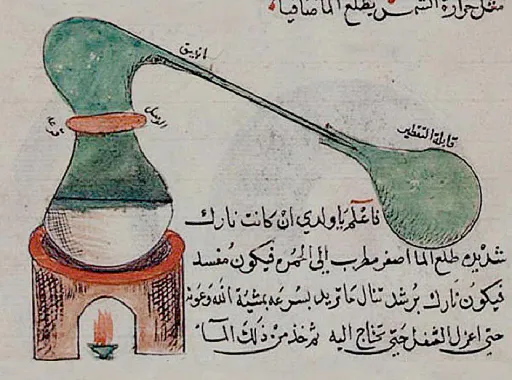 مثل حرارة الشمس يطلع الما صافيا
انبيق
قابلة التقطير
فاعلم يا ولدي ان كانت نارك
شديده طلع الما اصفر مطرب الي الحمره فيكون مفسد
فيكون نارك برشد تنال ما تريد بسرعه بمشية الله وعونه
حتي اعزل الثفل حتي تحتاج اليه ثم خذ من ذلك الما